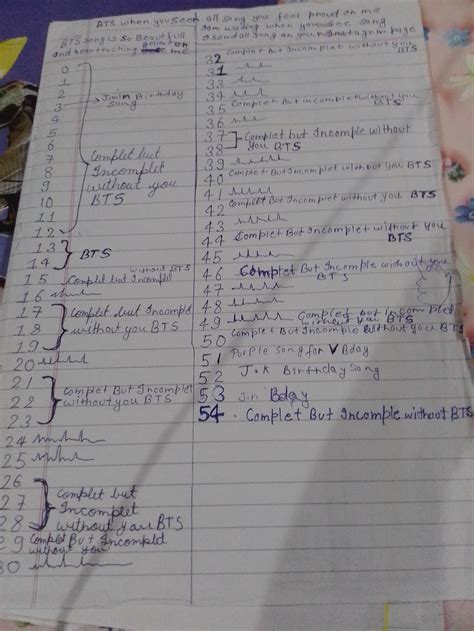 BTS when you seen all song you feel proud on me
I am waiting when you see song
BTS Song is so Beautfull
and heart touching me
0
1
2
3 Jimin Birthday
Song
4
5
6
7 Complet but
8 Incomplet
9 without you
10 BTS
11
12
13
14 BTS
15 Complet but Incomple without BTS
16
17 Complet but Incomple
18 without you BTS
19
20
21 Complet But Incomplet
22 without you BTS
23
24
25
26 Complet but
27 Incomplet
28 without you BTS
29 Complet But Incomplet
without you
30
32 Complet But Incomplet without you BTS
31
33
34
35 Complet But incomplet without you BTS
36
37 Complet but Incomple without
38 you BTS
39
40 Complet But Incomplet without you BTS
41
42 Complet But Incomplet without you BTS
43
44 Complet But Incomplet without you BTS
45
46 Complet But Incomple without you BTS
47
48
49 Complet but incomplet
without you BTS
50 Complet but Incomplet without you BTS
51 Purple Song for V Bday
52 J.k Birthday Song
53 Jin Bday
54. Complet But Incomple without BTS